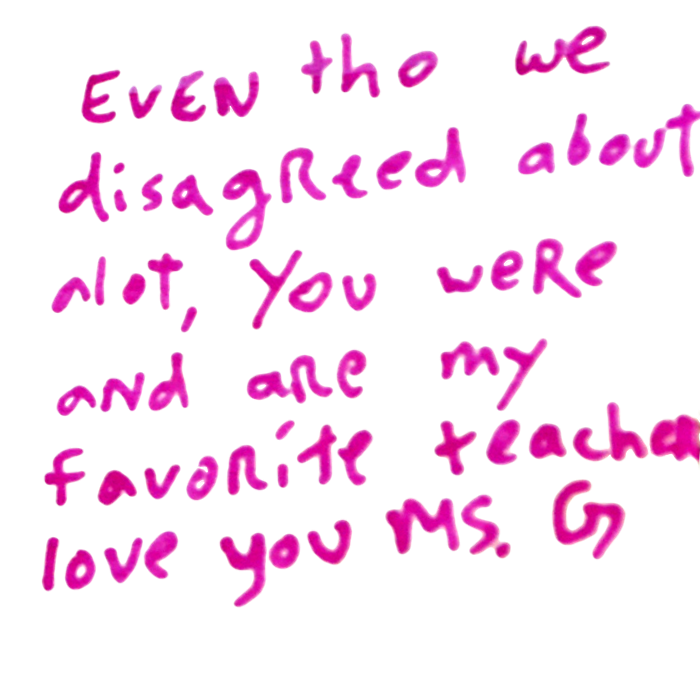 EVEN tho we
disagreed about
alot, you were
and are my
favorite teacher
love you Ms. G